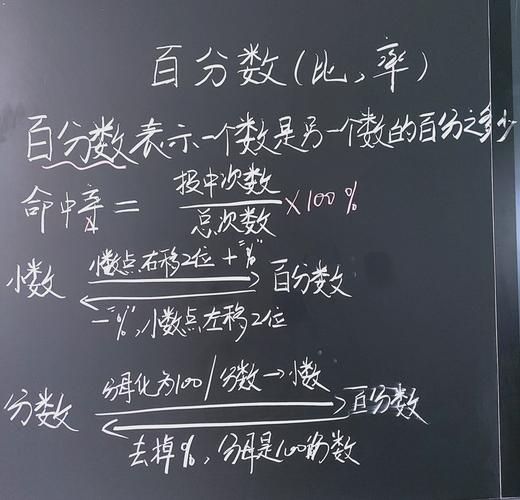 百分数(比,率)
百分数表示一个数是另一个数的百分之多少
命中率 = 投中次数/总次数 ×100%
小数点右移2位 + "%"
小数 百分数
- "%", 小数点左移2位
分母化为100/分数→小数
分数 百分数
去掉%, 分母是100的分数